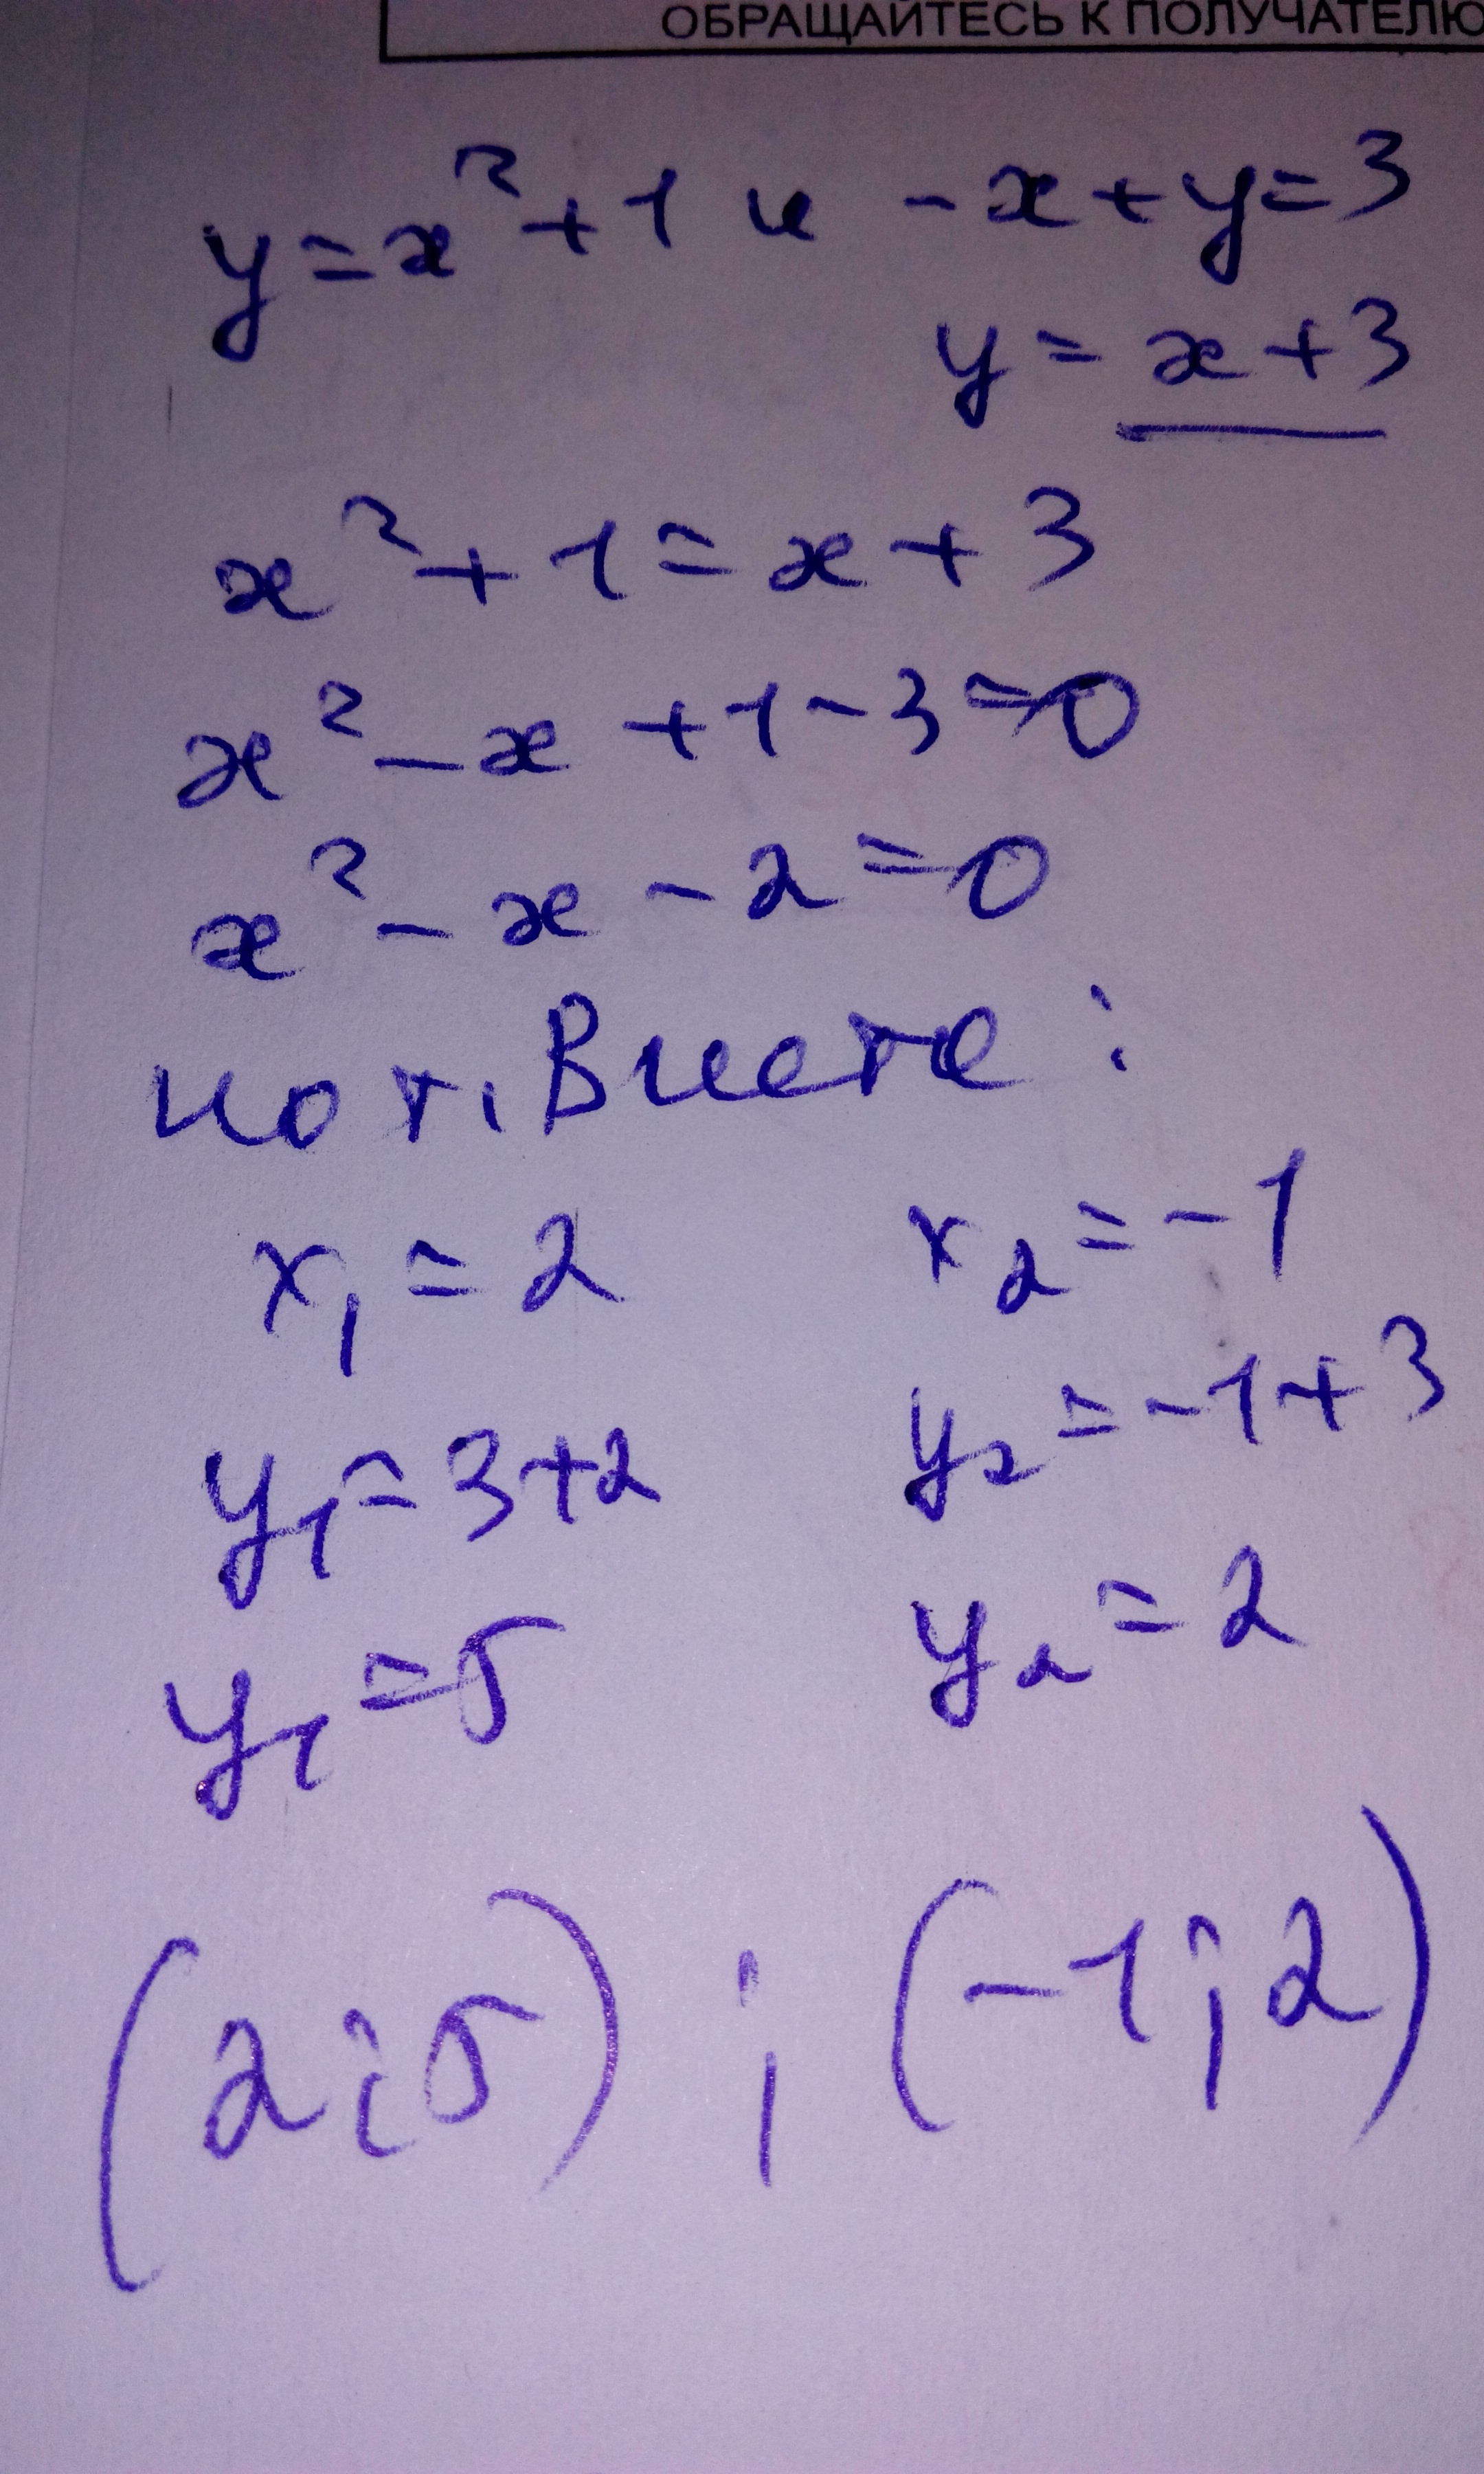 ОБРАЩАЙТЕСЬ К ПОЛУЧАТЕЛЮ
y=x²+1 и -x+y=3
y=x+3
x²+1=x+3
x²-x+1-3=0
x²-x-2=0
по т. Виета:
x₁=2 x₂=-1
y₁=3+2 y₂=-1+3
y₁=5 y₂=2
(2;5) ; (-1;2)